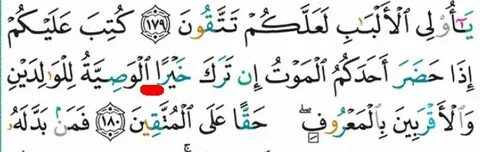 يَـٰٓأُو۟لِى ٱلْأَلْبَـٰبِ لَعَلَّكُمْ تَتَّقُونَ ١٧٩ كُتِبَ عَلَيْكُمْ
إِذَا حَضَرَ أَحَدَكُمُ ٱلْمَوْتُ إِن تَرَكَ خَيْرًا ٱلْوَصِيَّةُ لِلْوَٰلِدَيْنِ
وَٱلْأَقْرَبِينَ بِٱلْمَعْرُوفِ ۖ حَقًّا عَلَى ٱلْمُتَّقِينَ ١٨٠ فَمَنۢ بَدَّلَهُۥ